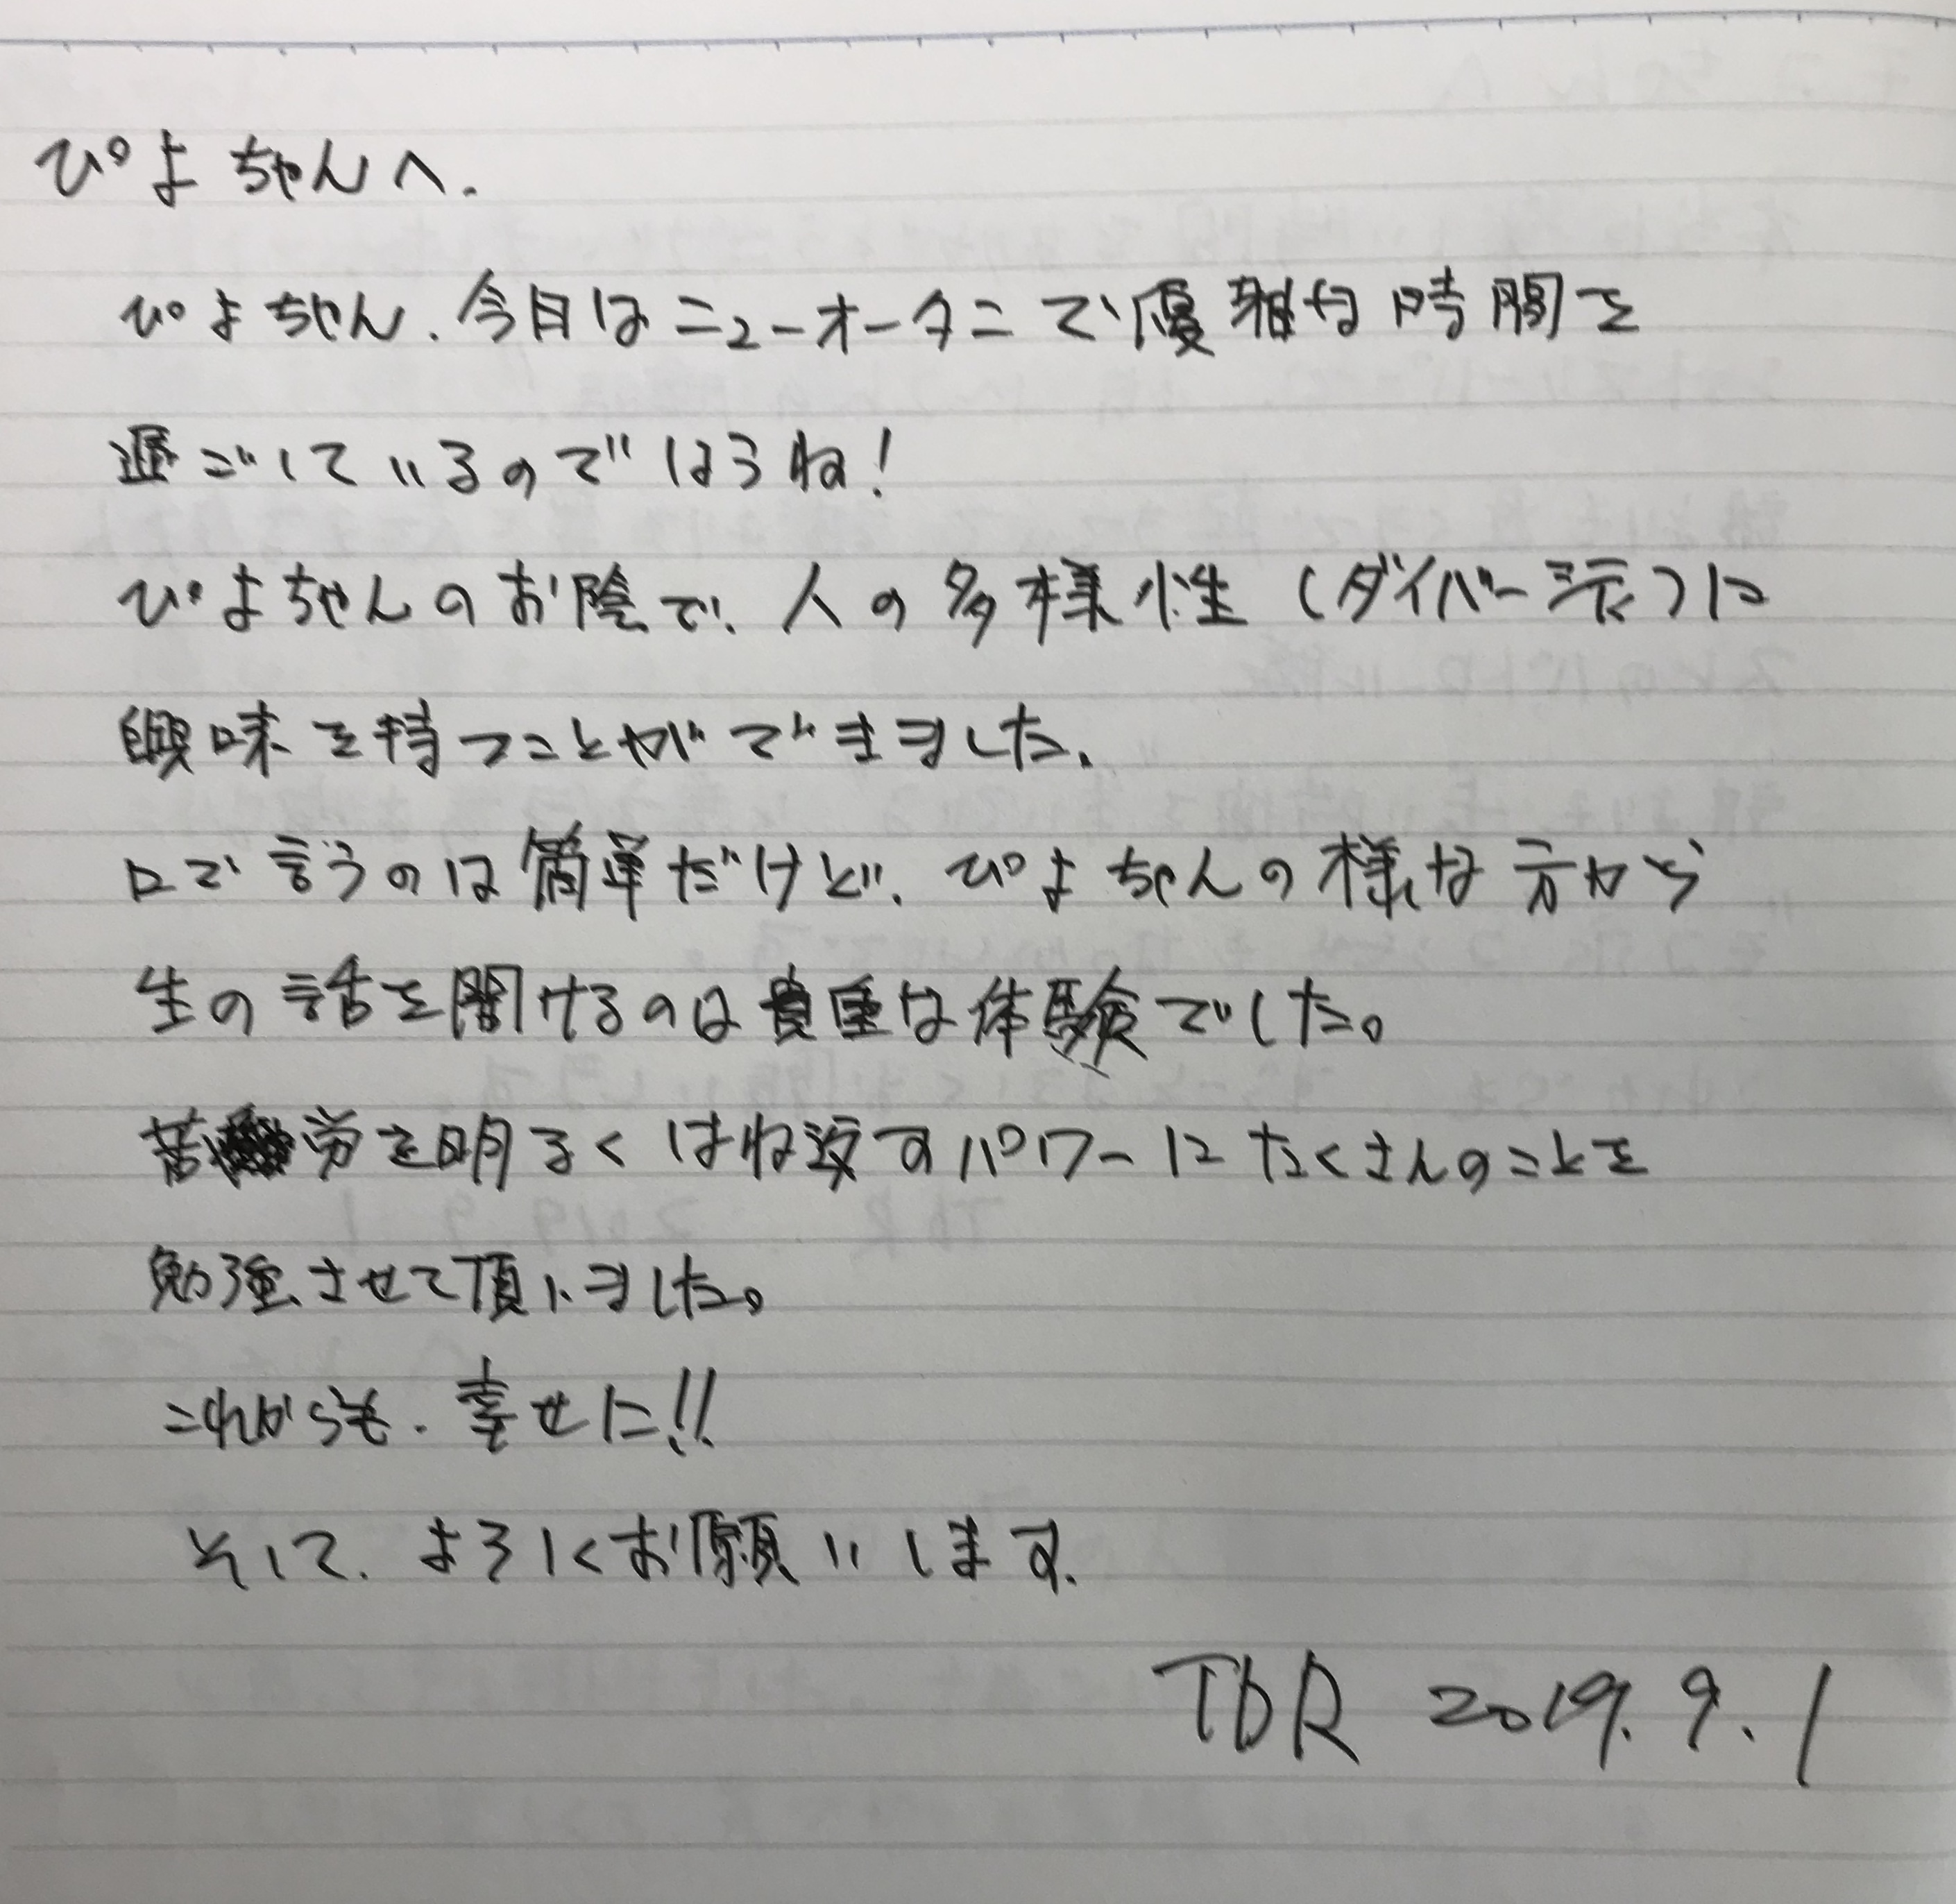 ぴよちゃんへ.
ぴよちゃん.今日はニューオータニで優雅な時間を
過ごしているのでしょうね!
ぴよちゃんのお陰で、人の多様性(ダイバー
興味を持つことができました.
口で言うのは簡単だけど、ぴよちゃんの様な方から
生の話を聞けるのは貴重な体験でした。
苦労を明るくはね返すパワーにたくさんのことを
勉強させて頂いました。
これからも.幸せに!!
そして.よろしくお願いします.
TDR 2019.9.1